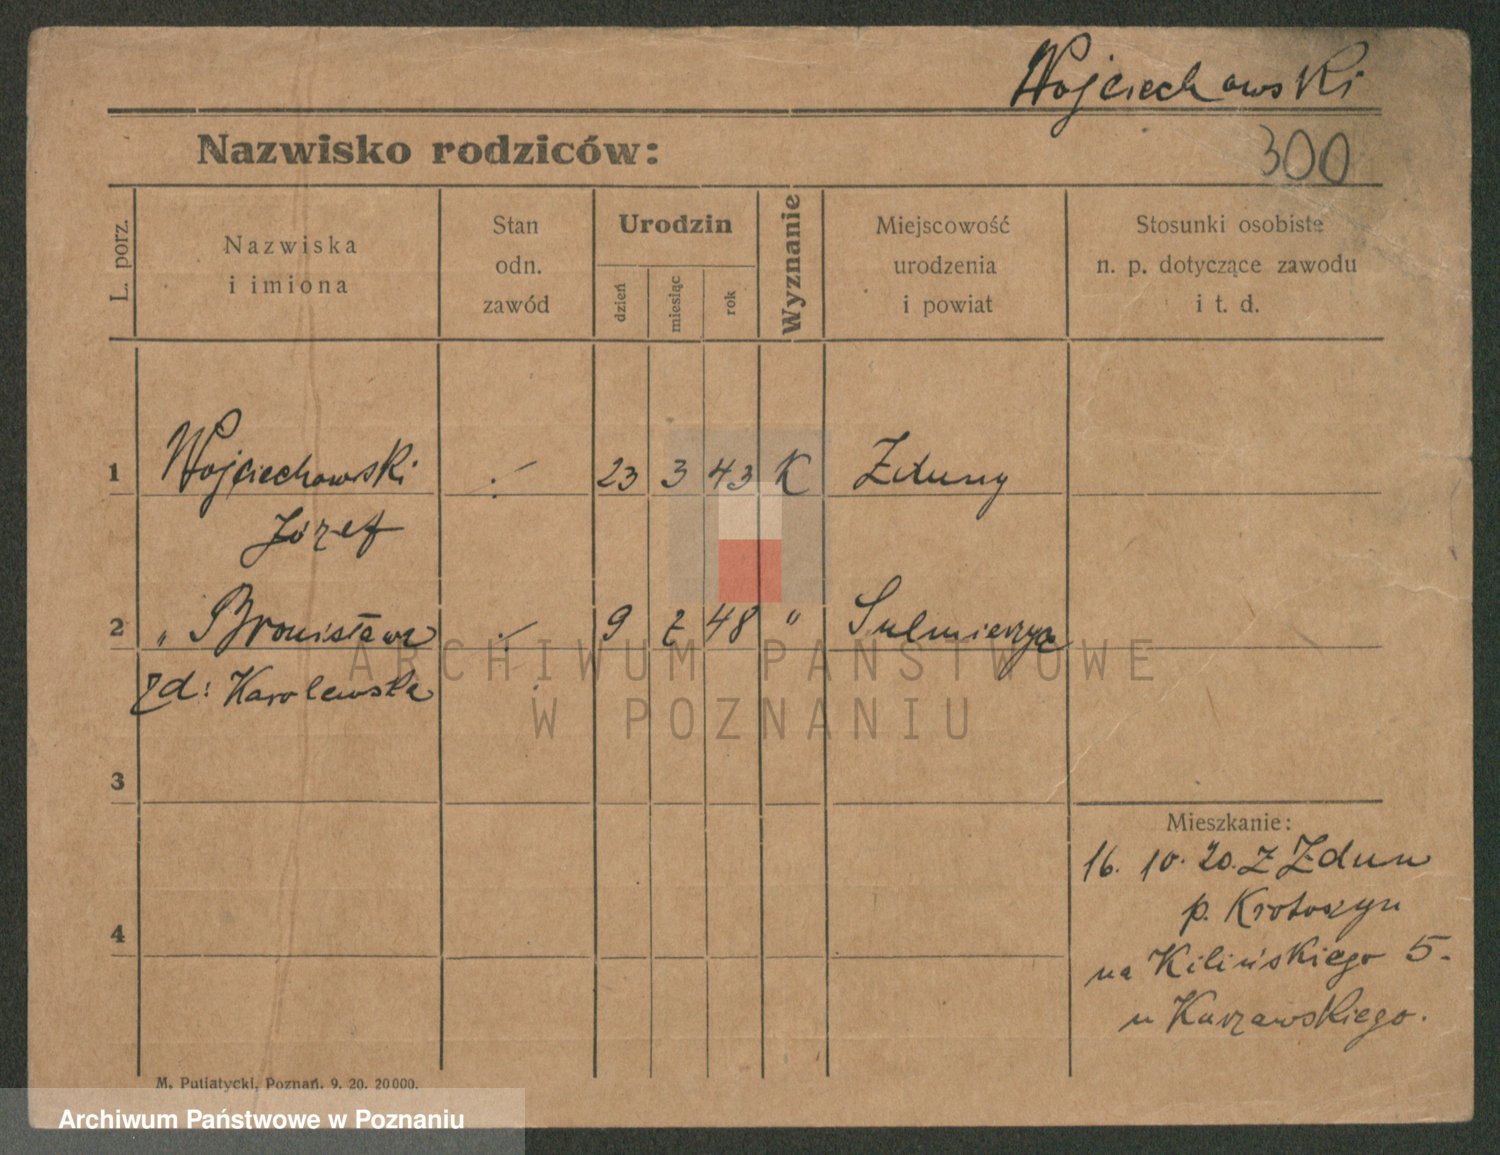 Wojciechowski
Nazwisko rodziców:
300
L. porz.
Nazwiska
i imiona
Stan
odn.
zawód
Urodzin
dzień
miesiąc
rok
Wyznanie
Miejscowość
urodzenia
i powiat
Stosunki osobiste
n. p. dotyczące zawodu
i t. d.
1 Wojciechowski ./. 23 3 43 K Zduny
Józef
2 " Bronisława ./. 9 2 48 " Sulmierzyce
zd: Karolewska
3
4
Mieszkanie:
16. 10. 20. z Zdun
p. Krotoszyn
na Kilińskiego 5.
u Kurzawskiego.
M. Putiatycki, Poznań. 9. 20. 20000.
ARCHIWUM PAŃSTWOWE
W POZNANIU
Archiwum Państwowe w Poznaniu